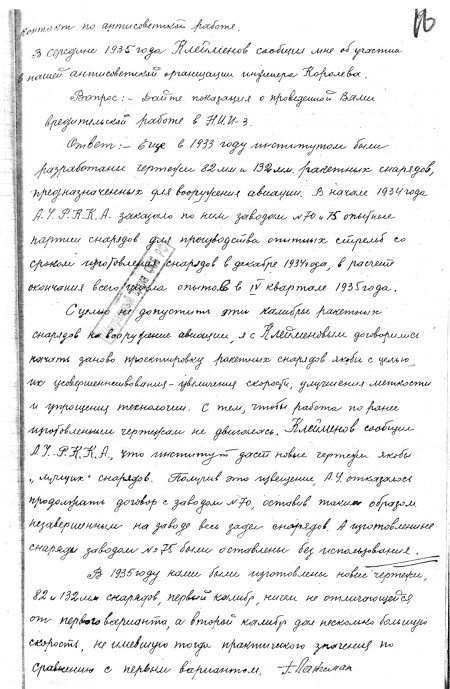 контакт по антисоветской работе.
В середине 1935 года Клейменов сообщил мне об участии
в нашей антисоветской организации инженера Королева.
Вопрос:- Дайте показания о проведенной Вами
вредительской работе в НИИ-3.
Ответ:- Еще в 1933 году институтом были
разработаны чертежи 82 мм и 132 мм. ракетных снарядов,
предназначенных для вооружения авиации. В начале 1934 года
А.У.Р.К.К.А. заказало по ним заводам №70 и 75 опытные
партии снарядов для производства опытных стрельб со
сроком изготовления снарядов в декабре 1934 года, в расчете
окончания всего опытов в IV квартале 1935 года.
С целью не допустить эти калибры ракетных
снарядов на вооружение авиации, я с Клейменовым договорились
начать заново проектировку ракетных снарядов якобы с целью
их усовершенствования - увеличения скорости, улучшения меткости
и упрощения технологии. С тем, чтобы работа по ранее
изготовленным чертежам не двигалась, Клейменов сообщил
А.У.Р.К.К.А., что институт даст новые чертежи якобы
"лучших" снарядов. Получив это извещение, А.У. отказалось
продолжать договор с заводом №70, оставив таким образом
незавершенным на заводе весь задел снарядов. А изготовленные
снаряды заводом №75 были оставлены без использования.
В 1935 году нами были изготовлены новые чертежи,
82 и 132 мм снарядов, первый калибр, ничем не отличающейся
от первого варианта, а второй калибр дал несколько большую
скорость, не имевшую тогда практического значения по
сравнению с первым вариантом. Г. Лангемак